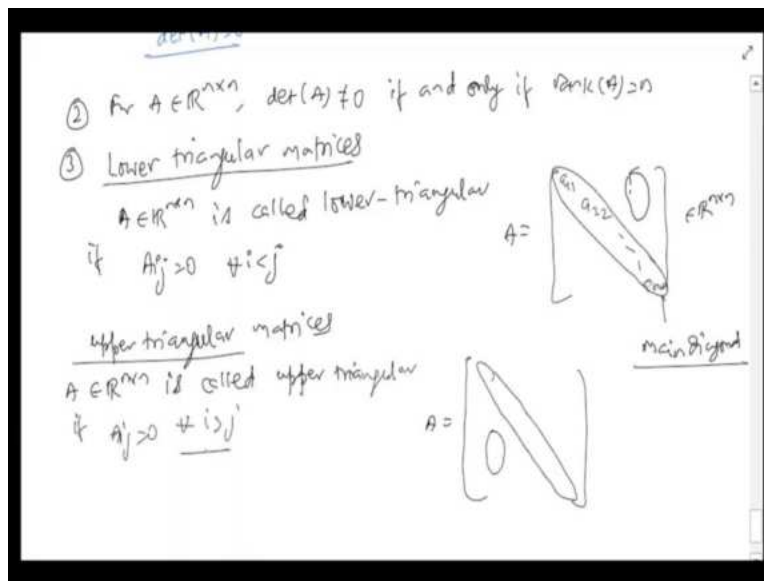 ② For A ∈ ℝⁿˣⁿ, det(A) ≠ 0 if and only if rank(A)=n
③ Lower triangular matrices
A ∈ ℝⁿˣⁿ is called lower-triangular
if Aij=0 ∀ i<j
A= [ a11 a22 ann 0 ] ∈ ℝⁿˣⁿ
main diagonal
upper triangular matrices
A ∈ ℝⁿˣⁿ is called upper triangular
if Aij=0 ∀ i>j
A= [ 0 ]